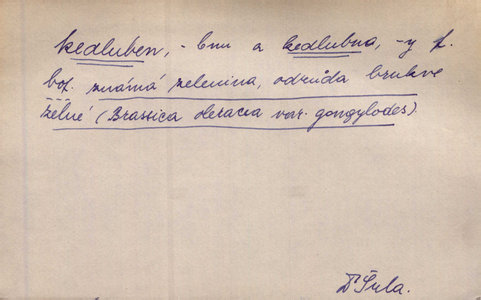 kedluben, -bnu a kedlubna, -y f.
bot. známá zelenina, odrůda brukve
zelné (Brassica oleracea var. gongylodes).
Šula.